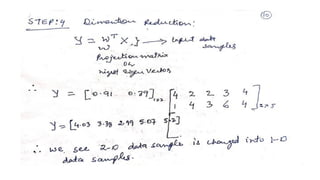 10
STEP:4 Dimention Reduction:
y = Wᵀ X. } → Input data samples
W
Projection matrix
or
right eigen vector
∴ y = [0.91 0.39]₁ₓ₂ [4 2 2 3 4
1 4 3 6 4]₂ₓ₅
y = [4.03 3.38 2.99 5.07 5.2]
∴ We see 2-D data sample is changed into 1-D
data samples.